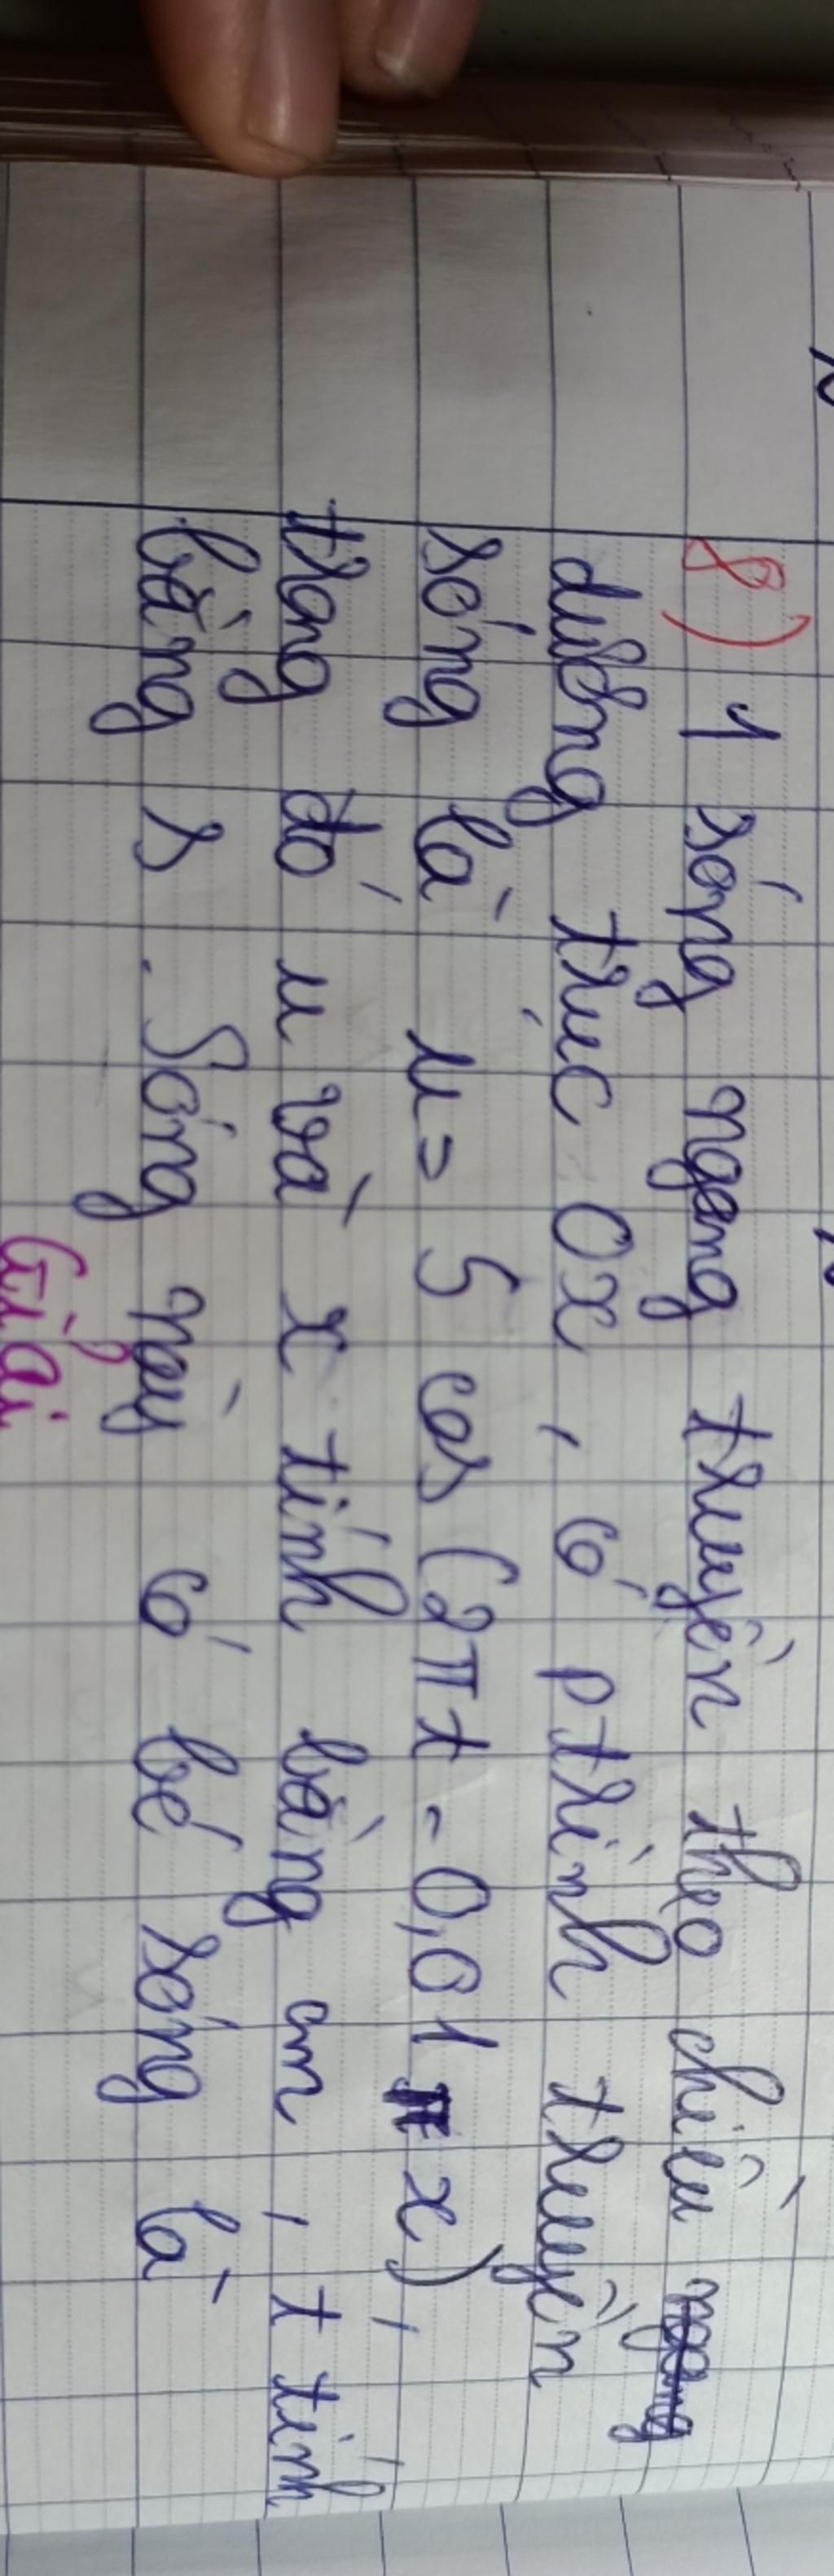 8) 1 sóng ngang truyền theo chiều
dương trục Ox, có ptrình truyền
sóng là u = 5 cos (2πt - 0,01πx),
trong đó u và x tính bằng cm, t tính
bằng s. Sóng này có bé sóng là
Giải